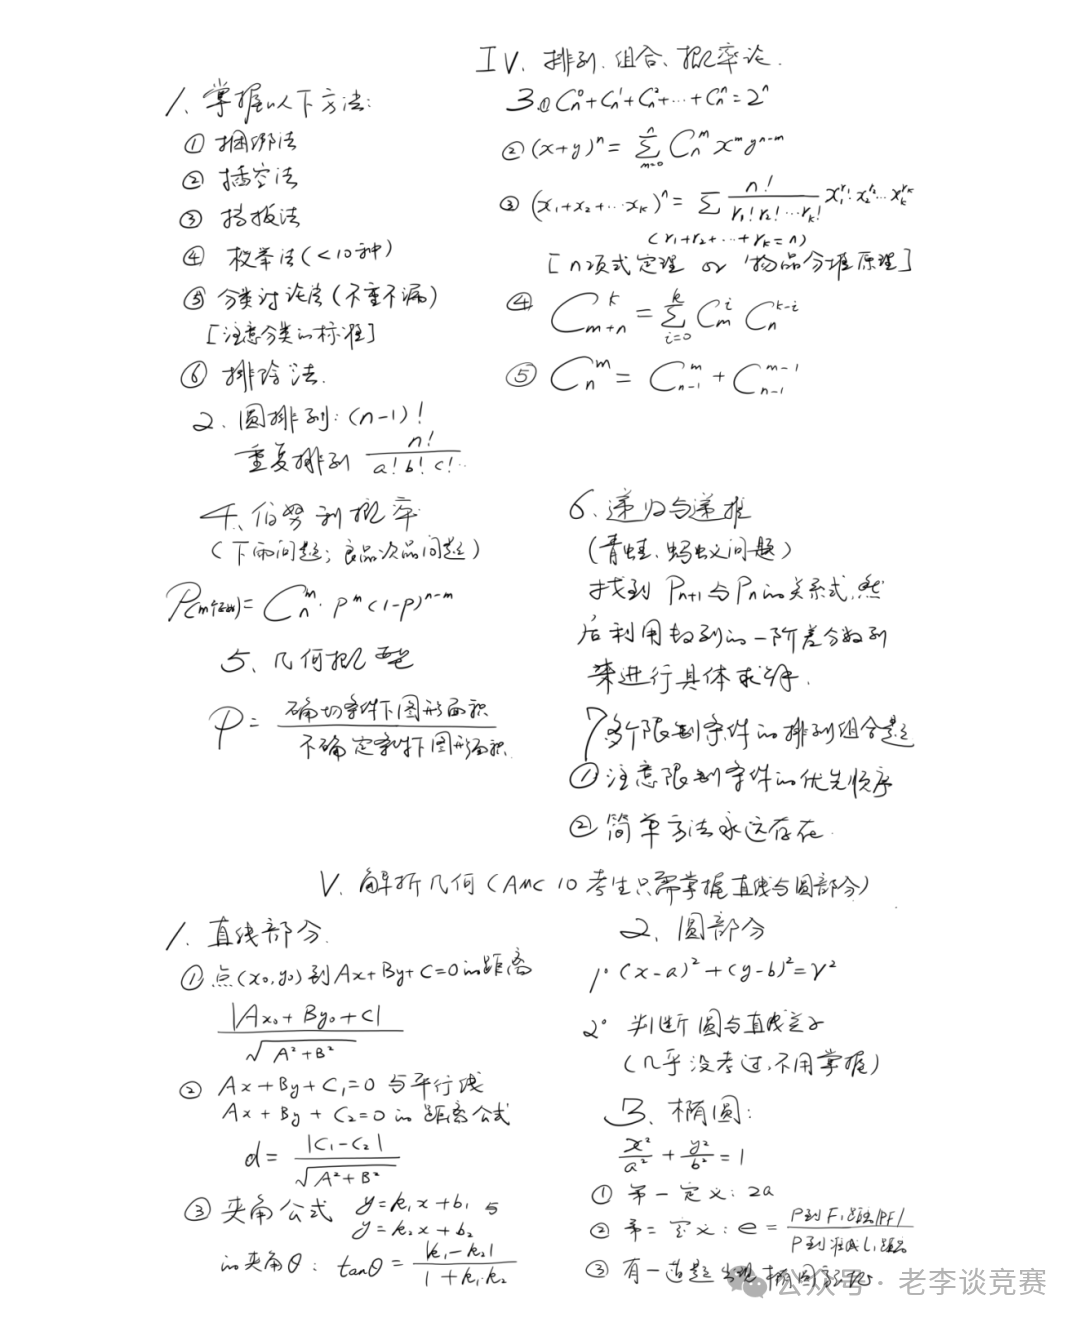 IV. 排列、组合、概率论.
1. 掌握以下方法:
① 捆绑法
② 插空法
③ 挡板法
④ 枚举法(<10种)
⑤ 分类讨论法(不重不漏)
[注意分类的标准]
⑥ 排除法.
2. 圆排列: (n-1)!
重复排列 n! / a! b! c!...
3. ① C_n^0 + C_n^1 + C_n^2 + ... + C_n^n = 2^n
② (x+y)^n = Σ_{m=0}^{n} C_n^m x^m y^{n-m}
③ (x_1+x_2+...x_k)^n = Σ n! / r_1! r_2! ... r_k! x_1^{r_1} x_2^{r_2} ... x_k^{r_k}
(r_1+r_2+...+r_k=n)
[n项式定理 or 物品分堆原理]
④ C_{m+n}^k = Σ_{i=0}^{k} C_m^i C_n^{k-i}
⑤ C_n^m = C_{n-1}^m + C_{n-1}^{m-1}
4. 伯努利概率
(下雨问题; 良品次品问题)
= C_n^m · p^m (1-p)^{n-m}
5、几何概型
P = 确切条件下图形面积 / 不确定条件下图形面积
6、递归与递推
(青蛙、蚂蚁问题)
找到 P_{n+1} 与 P_n 的关系式, 然
后利用数列的一阶差分数列
来进行具体求解.
7 多个限制条件的排列组合题
① 注意限制条件的优先顺序
② 简单方法永远存在.
V. 解析几何 (AMC 10 考生只需掌握直线与圆部分)
1. 直线部分.
① 点(x_0,y_0)到Ax+By+C=0的距离
|Ax_0+By_0+C| / √(A²+B²)
② Ax+By+C_1=0 与平行线
Ax+By+C_2=0 的距离公式
d = |C_1-C_2| / √(A²+B²)
③ 夹角公式 y=k_1x+b_1 与
y=k_2x+b_2
的夹角θ: tanθ = |k_1-k_2| / 1+k_1·k_2
2、圆部分
1° (x-a)²+(y-b)²=r²
2° 判断圆与直线关系
(几乎没考过,不用掌握)
3、椭圆:
x²/a² + y²/b² = 1
① 第一定义: 2a
② 第二定义: e = P到F_1距离|PF| / P到准线l_1距离
③ 有一道题出现椭圆
公众号 · 老李谈竞赛